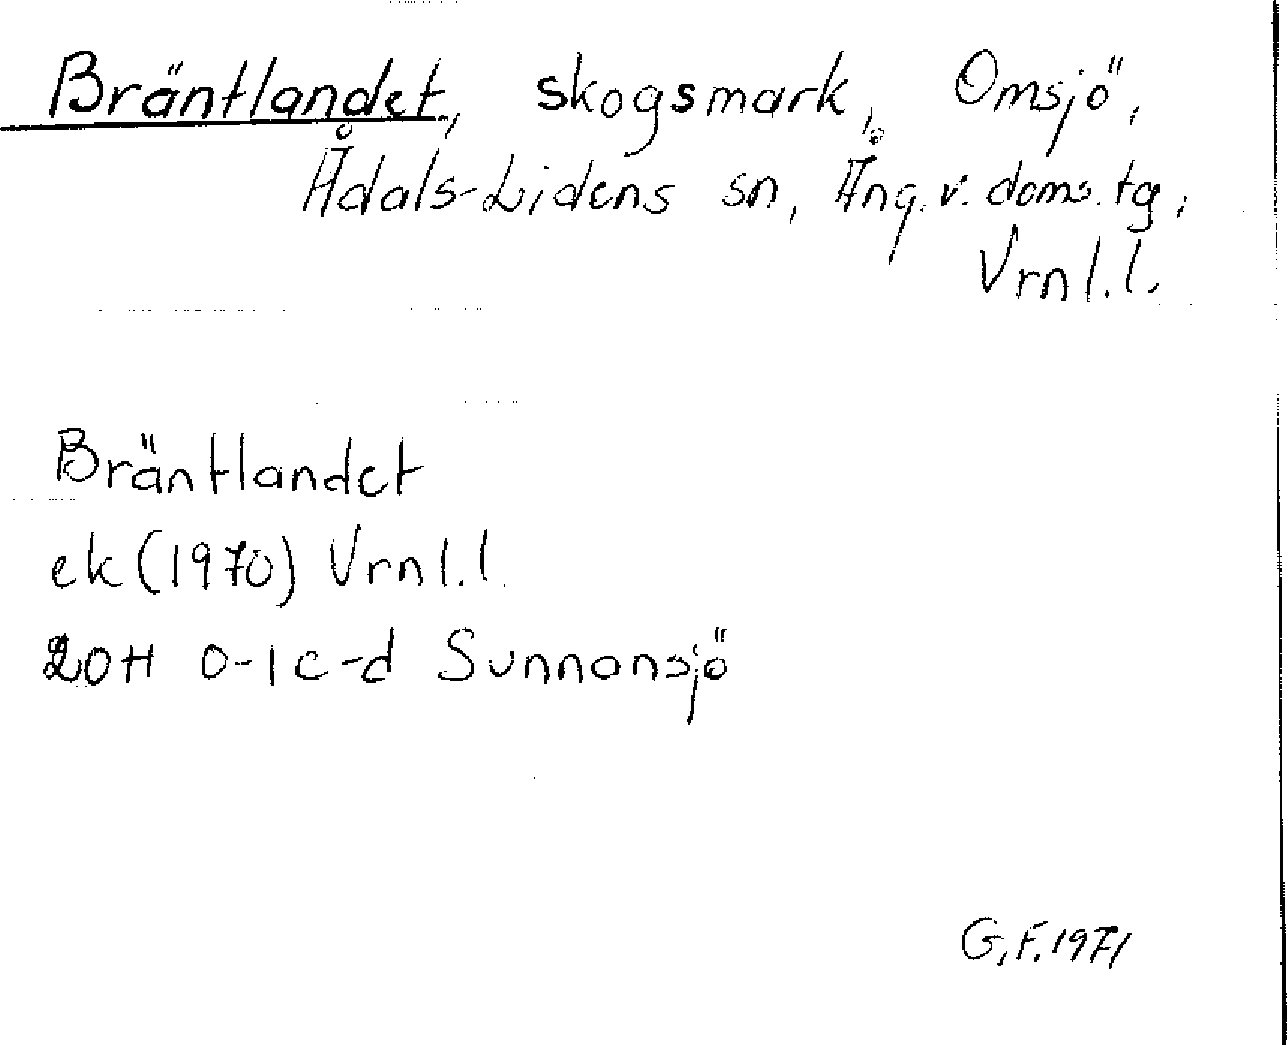 Bräntlandet, skogsmark, Omsjö,
Ådals-Lidens sn, Ång. v. doms. tg,
Vrnl.l.
Bräntlandet
ek (1970) Vrnl.l.
20H 0-1 c-d Sunnansjö
G.F. 1971